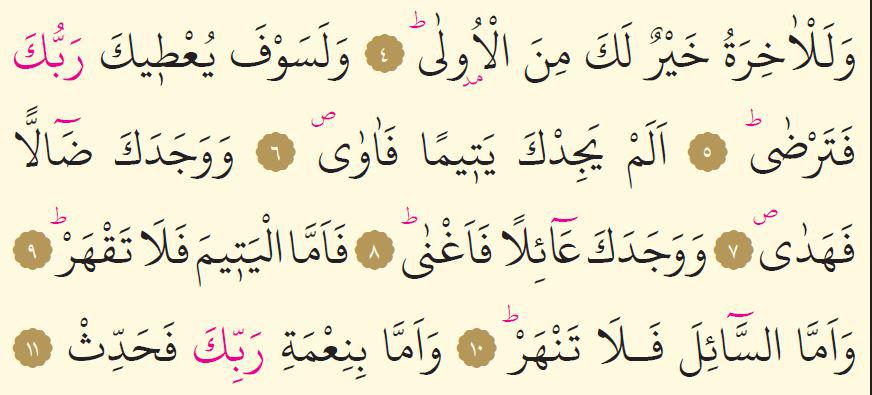 وَلَلْاٰخِرَةُ خَيْرٌ لَكَ مِنَ الْاُو۫لٰىۜ ﴿٤﴾ وَلَسَوْفَ يُعْط۪يكَ رَبُّكَ
فَتَرْضٰىۜ ﴿٥﴾ اَلَمْ يَجِدْكَ يَت۪يمًا فَاٰوٰىۖ ﴿٦﴾ وَوَجَدَكَ ضَٓالًّا
فَهَدٰىۖ ﴿٧﴾ وَوَجَدَكَ عَٓائِلًا فَاَغْنٰىۜ ﴿٨﴾ فَاَمَّا الْيَت۪يمَ فَلَا تَقْهَرْۜ ﴿٩﴾
وَاَمَّا السَّٓائِلَ فَلَا تَنْهَرْۜ ﴿١٠﴾ وَاَمَّا بِنِعْمَةِ رَبِّكَ فَحَدِّثْ ﴿١١﴾